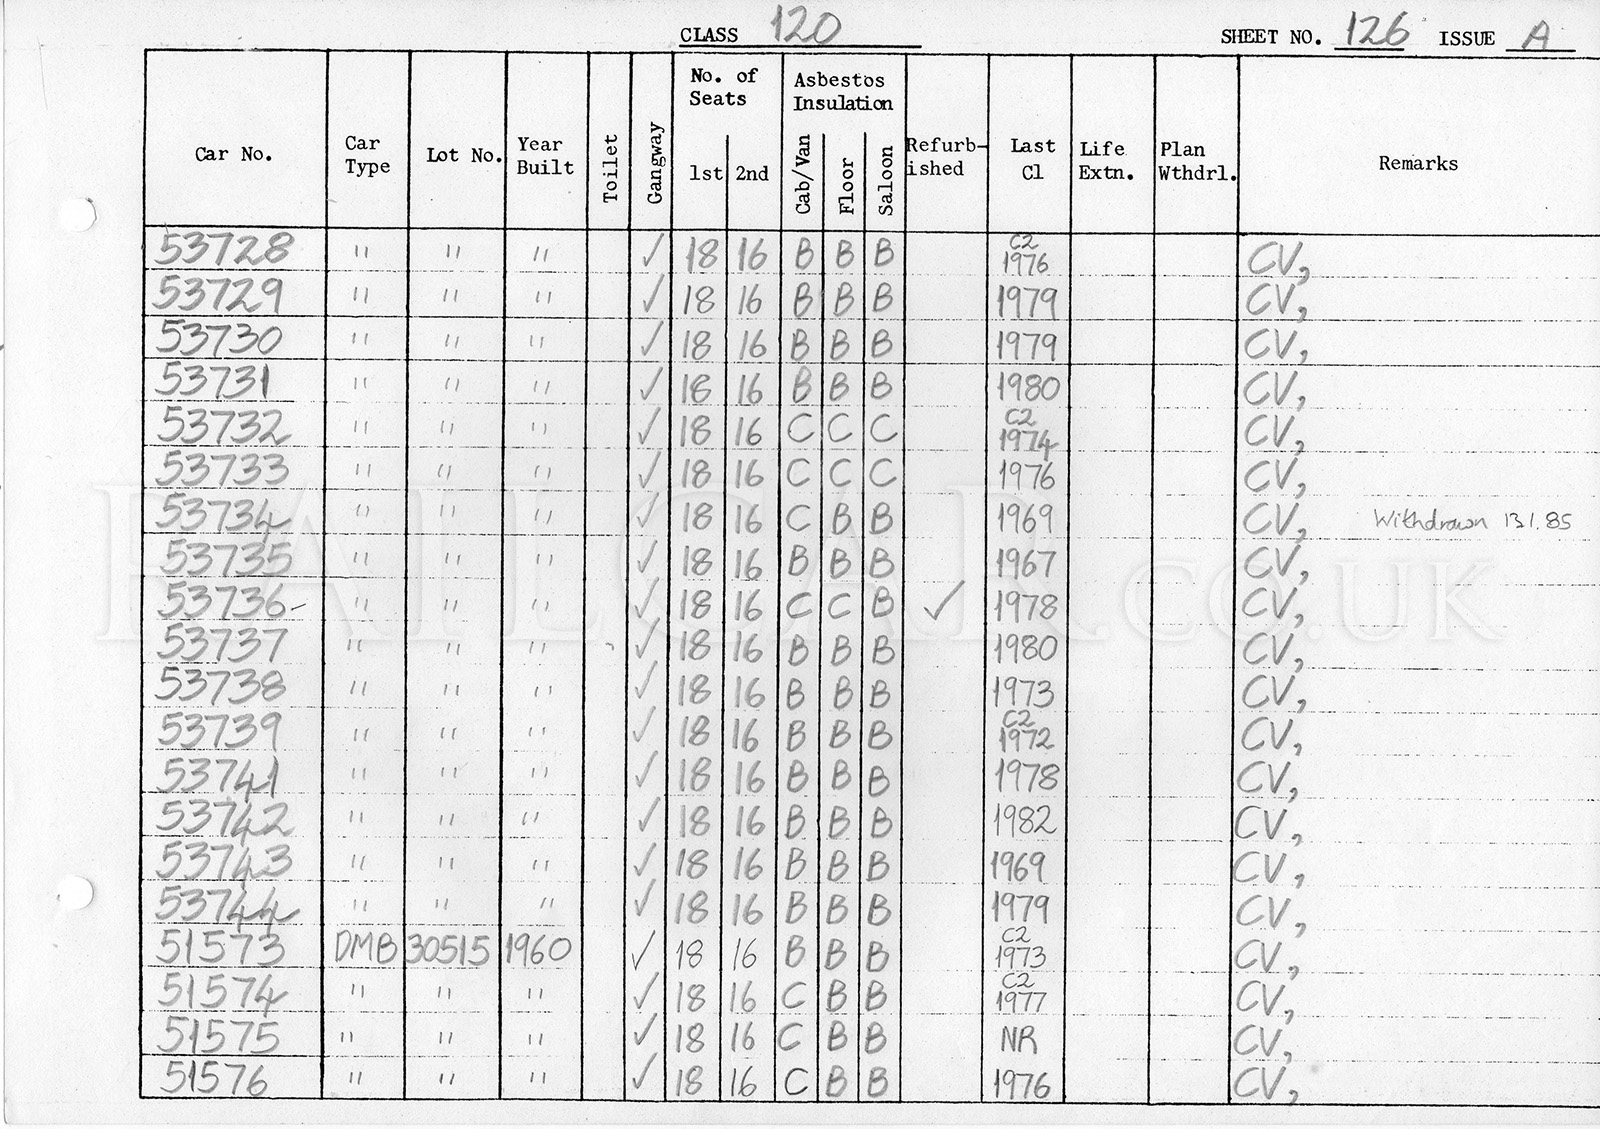 CLASS 120 SHEET NO. 126 ISSUE A
Car No. Car Type Lot No. Year Built Toilet Gangway No. of Seats 1st 2nd Asbestos Insulation Cab/Van Floor Saloon Refurb-ished Last Cl Life Extn. Plan Wthdrl. Remarks
53728 " " " ✓ 18 16 B B B C2 1976 CV,
53729 " " " ✓ 18 16 B B B 1979 CV,
53730 " " " ✓ 18 16 B B B 1979 CV,
53731 " " " ✓ 18 16 B B B 1980 CV,
53732 " " " ✓ 18 16 C C C C2 1974 CV,
53733 " " " ✓ 18 16 C C C 1976 CV,
53734 " " " ✓ 18 16 C B B 1969 CV, Withdrawn 13.1.85
53735 " " " ✓ 18 16 B B B 1967 CV,
53736- " " " ✓ 18 16 C C B ✓ 1978 CV,
53737 " " " ✓ 18 16 B B B 1980 CV,
53738 " " " ✓ 18 16 B B B 1973 CV,
53739 " " " ✓ 18 16 B B B C2 1972 CV,
53741 " " " ✓ 18 16 B B B 1978 CV,
53742 " " " ✓ 18 16 B B B 1982 CV,
53743 " " " ✓ 18 16 B B B 1969 CV,
53744 " " " ✓ 18 16 B B B 1979 CV,
51573 DMB 30515 1960 ✓ 18 16 B B B C2 1973 CV,
51574 " " " ✓ 18 16 C B B C2 1977 CV,
51575 " " " ✓ 18 16 C B B NR CV,
51576 " " " ✓ 18 16 C B B 1976 CV,
RAILCAR.CO.UK